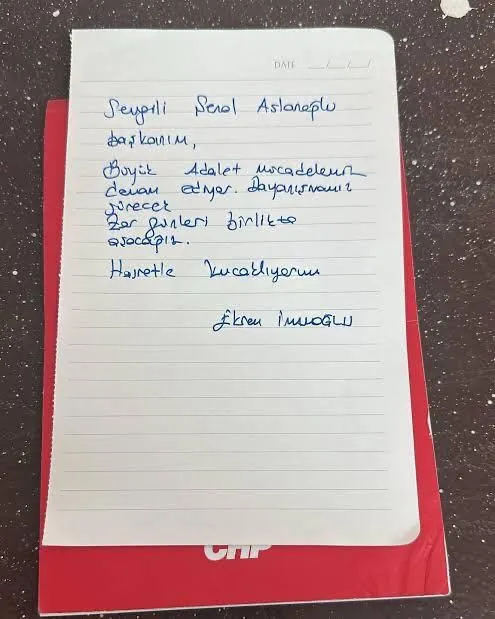 DATE __/__/__
Sevgili Şenol Aslanoğlu
Başkanım,
Büyük Adalet mücadelemiz
devam ediyor. Dayanışmamız
sürecek
Zor günleri birlikte
aşacağız.
Hasretle kucaklıyorum
Ekrem İMAMOĞLU
CHP